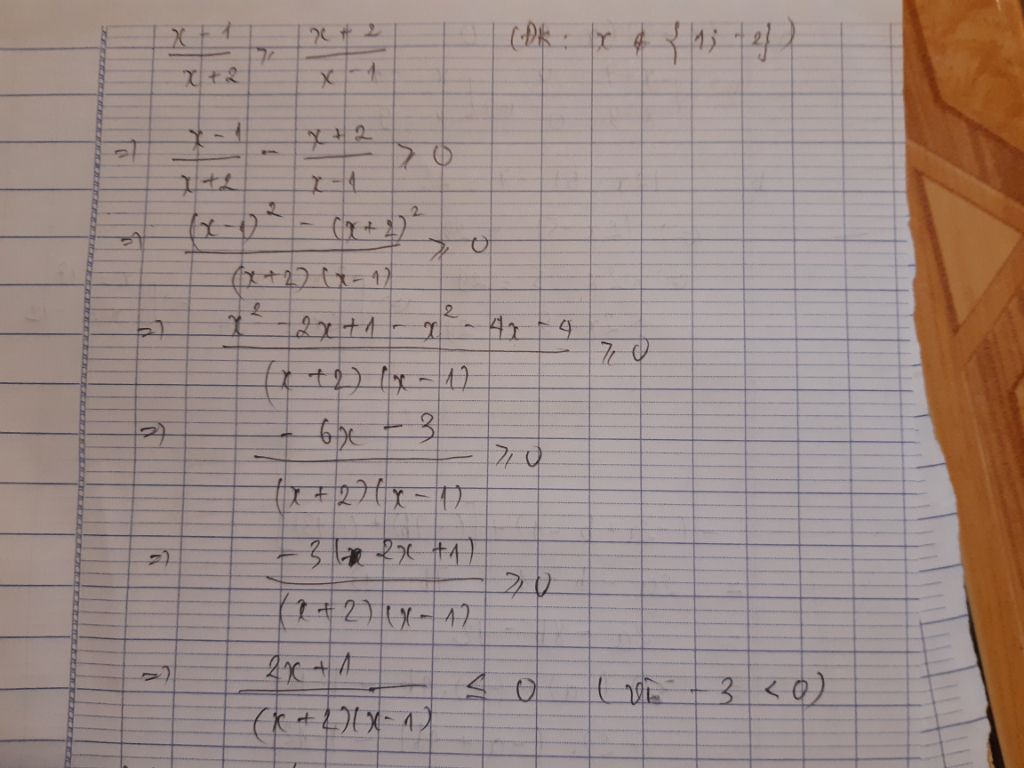 (x-1)/(x+2) ≥ (x+2)/(x-1) (ĐK: x ∉ {1; -2})
=> (x-1)/(x+2) - (x+2)/(x-1) ≥ 0
=> ((x-1)² - (x+2)²)/((x+2)(x-1)) ≥ 0
=> (x² - 2x + 1 - x² - 4x - 4)/((x+2)(x-1)) ≥ 0
=> (-6x - 3)/((x+2)(x-1)) ≥ 0
=> (-3(2x+1))/((x+2)(x-1)) ≥ 0
=> (2x+1)/((x+2)(x-1)) ≤ 0 (vì -3 < 0)